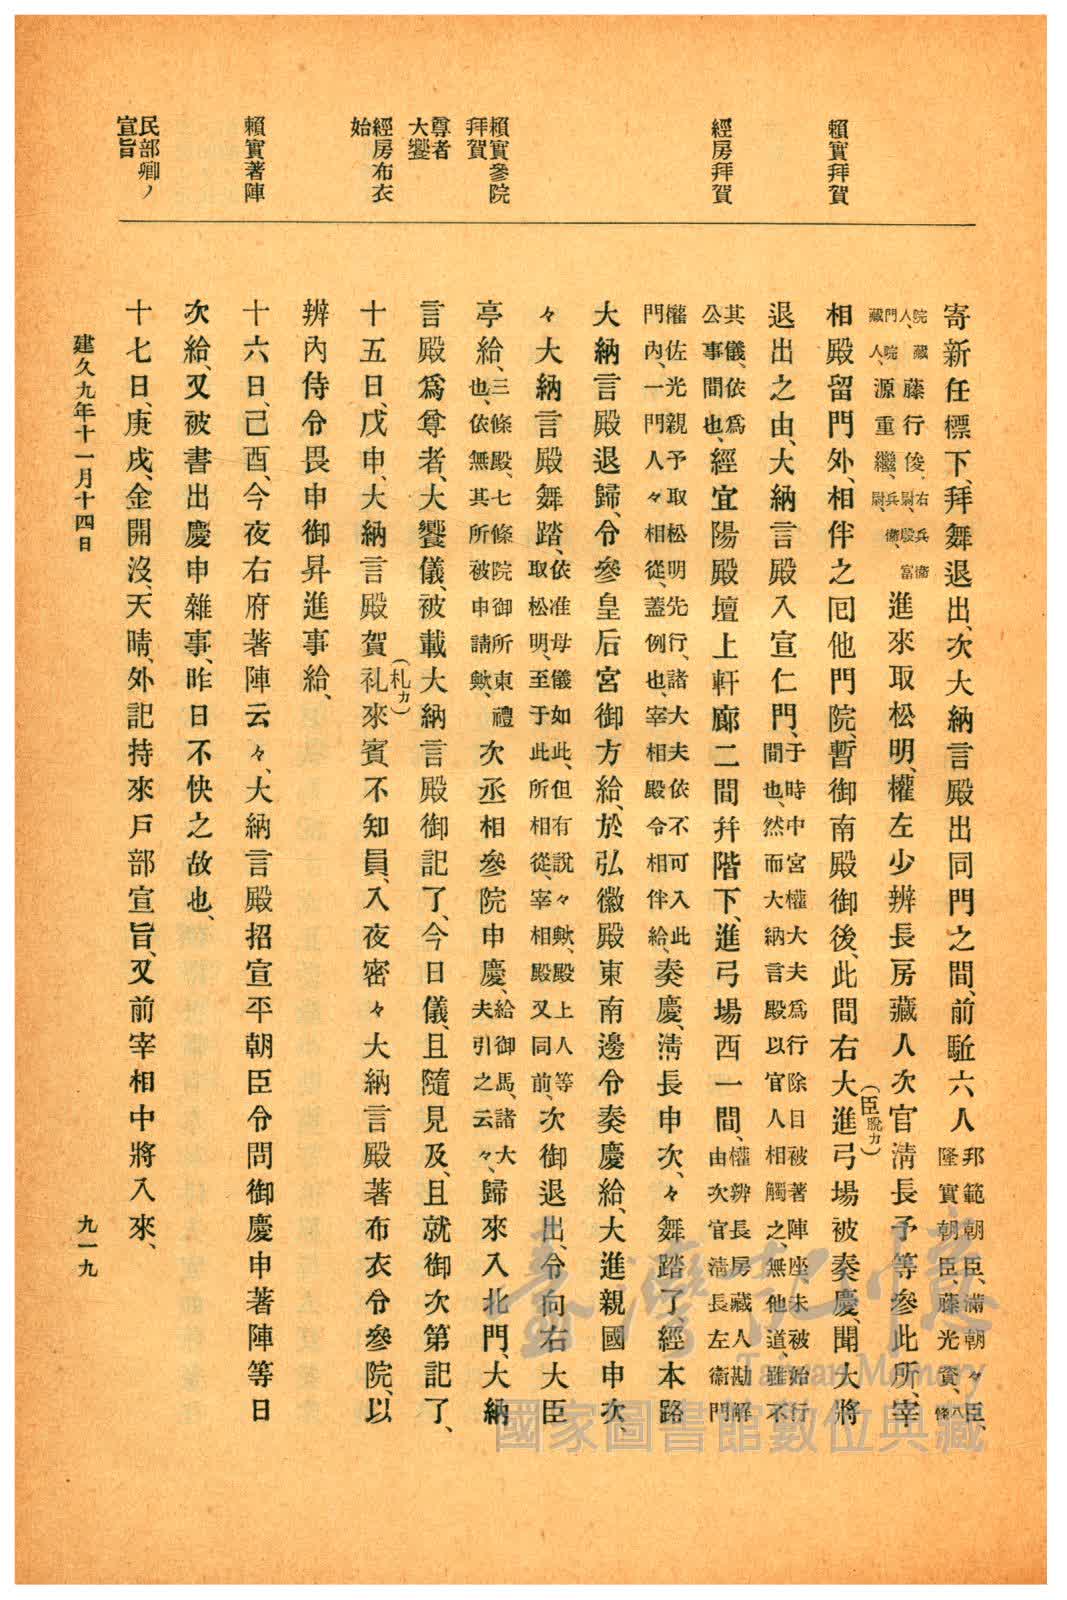 賴實拜賀
經房拜賀
賴實參院
拜賀
尊者
大饗
經房布衣
始
賴實著陣
民部卿ノ
宣旨
寄新任標下、拜舞退出、次大納言殿出同門之間、前駈六人邦範朝臣、滿朝々臣、隆實朝臣、藤光實、八條
院藏人、藤行俊、右兵衛尉、殷富門院藏人、源重繼、兵衛尉、進來取松明、權左少辨長房藏人次官淸長予等參此所、宰
相殿留門外、相伴之囘他門院、暫御南殿御後、此間右大進弓場被奏慶、聞大將
(臣脫カ)
退出之由、大納言殿入宣仁門、于時中宮權大夫爲行除目被著陣座未被始行間也、然而大納言殿以官人相觸之、無他道、雖不
其儀、依爲公事間也、經宜陽殿壇上軒廊二間幷階下、進弓場西一間、權辨長房藏人勘解由次官淸長左衛門
權佐光親予取松明先行、諸大夫依不可入此門內、一門人々相從、蓋例也、宰相殿令相伴給、奏慶、淸長申次、々舞踏了、經本路
大納言殿退歸、令參皇后宮御方給、於弘徽殿東南邊令奏慶給、大進親國申次、
々大納言殿舞踏、依准母儀如此、但有說々歟、殿上人等取松明、至于此所相從、宰相殿又同前、次御退出、令向右大臣
亭給、三條殿、七條院御所東禮也、依無其所被申請歟、次丞相參院申慶、給御馬、諸大夫引之云々、歸來入北門、大納
言殿爲尊者、大饗儀、被載大納言殿御記了、今日儀、且隨見及、且就御次第記了、
十五日、戊申、大納言殿賀礼來賓不知員、入夜密々大納言殿著布衣令參院、以
(札カ)
辨內侍令畏申御昇進事給、
十六日、己酉、今夜右府著陣云々、大納言殿招宣平朝臣令問御慶申著陣等日
次給、又被書出慶申雜事、昨日不快之故也、
十七日、庚戌、金開沒、天晴、外記持來戶部宣旨、又前宰相中將入來、
建久九年十一月十四日
九一九
臺灣記憶
Taiwan Memory
國家圖書館數位典藏